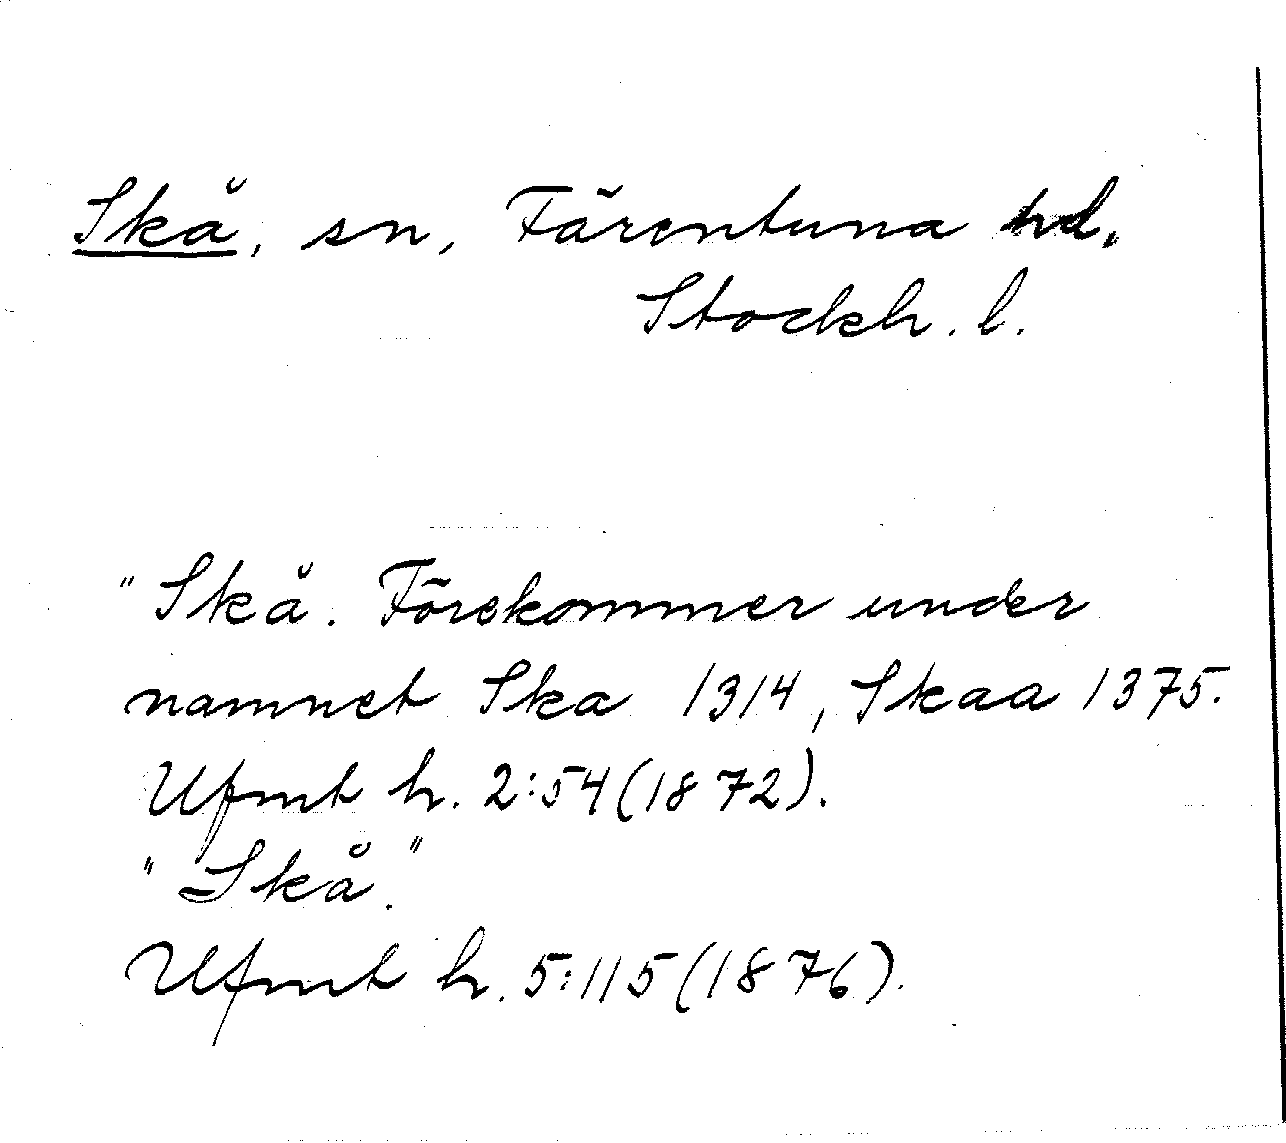 Skå, sn, Färentuna hd.
Stockh. l.
"Skå. Förekommer under
namnet Ska 1314, Skaa 1375.
Ufmt h. 2:54 (1872).
"Skå."
Ufmt h. 5:115 (1876).